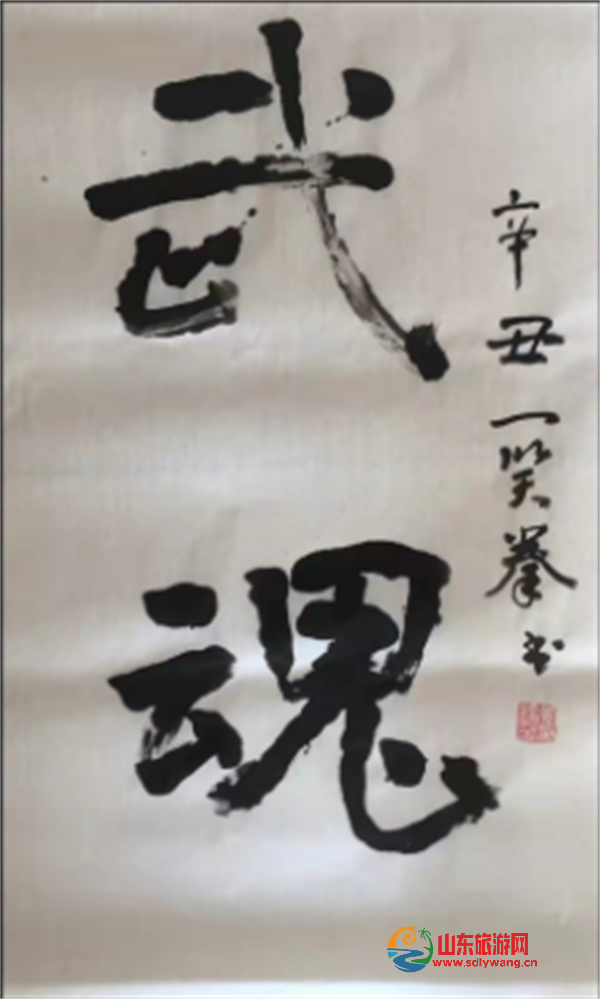 武魂
辛丑一笑拳书
山东旅游网
www.sdlywang.cn